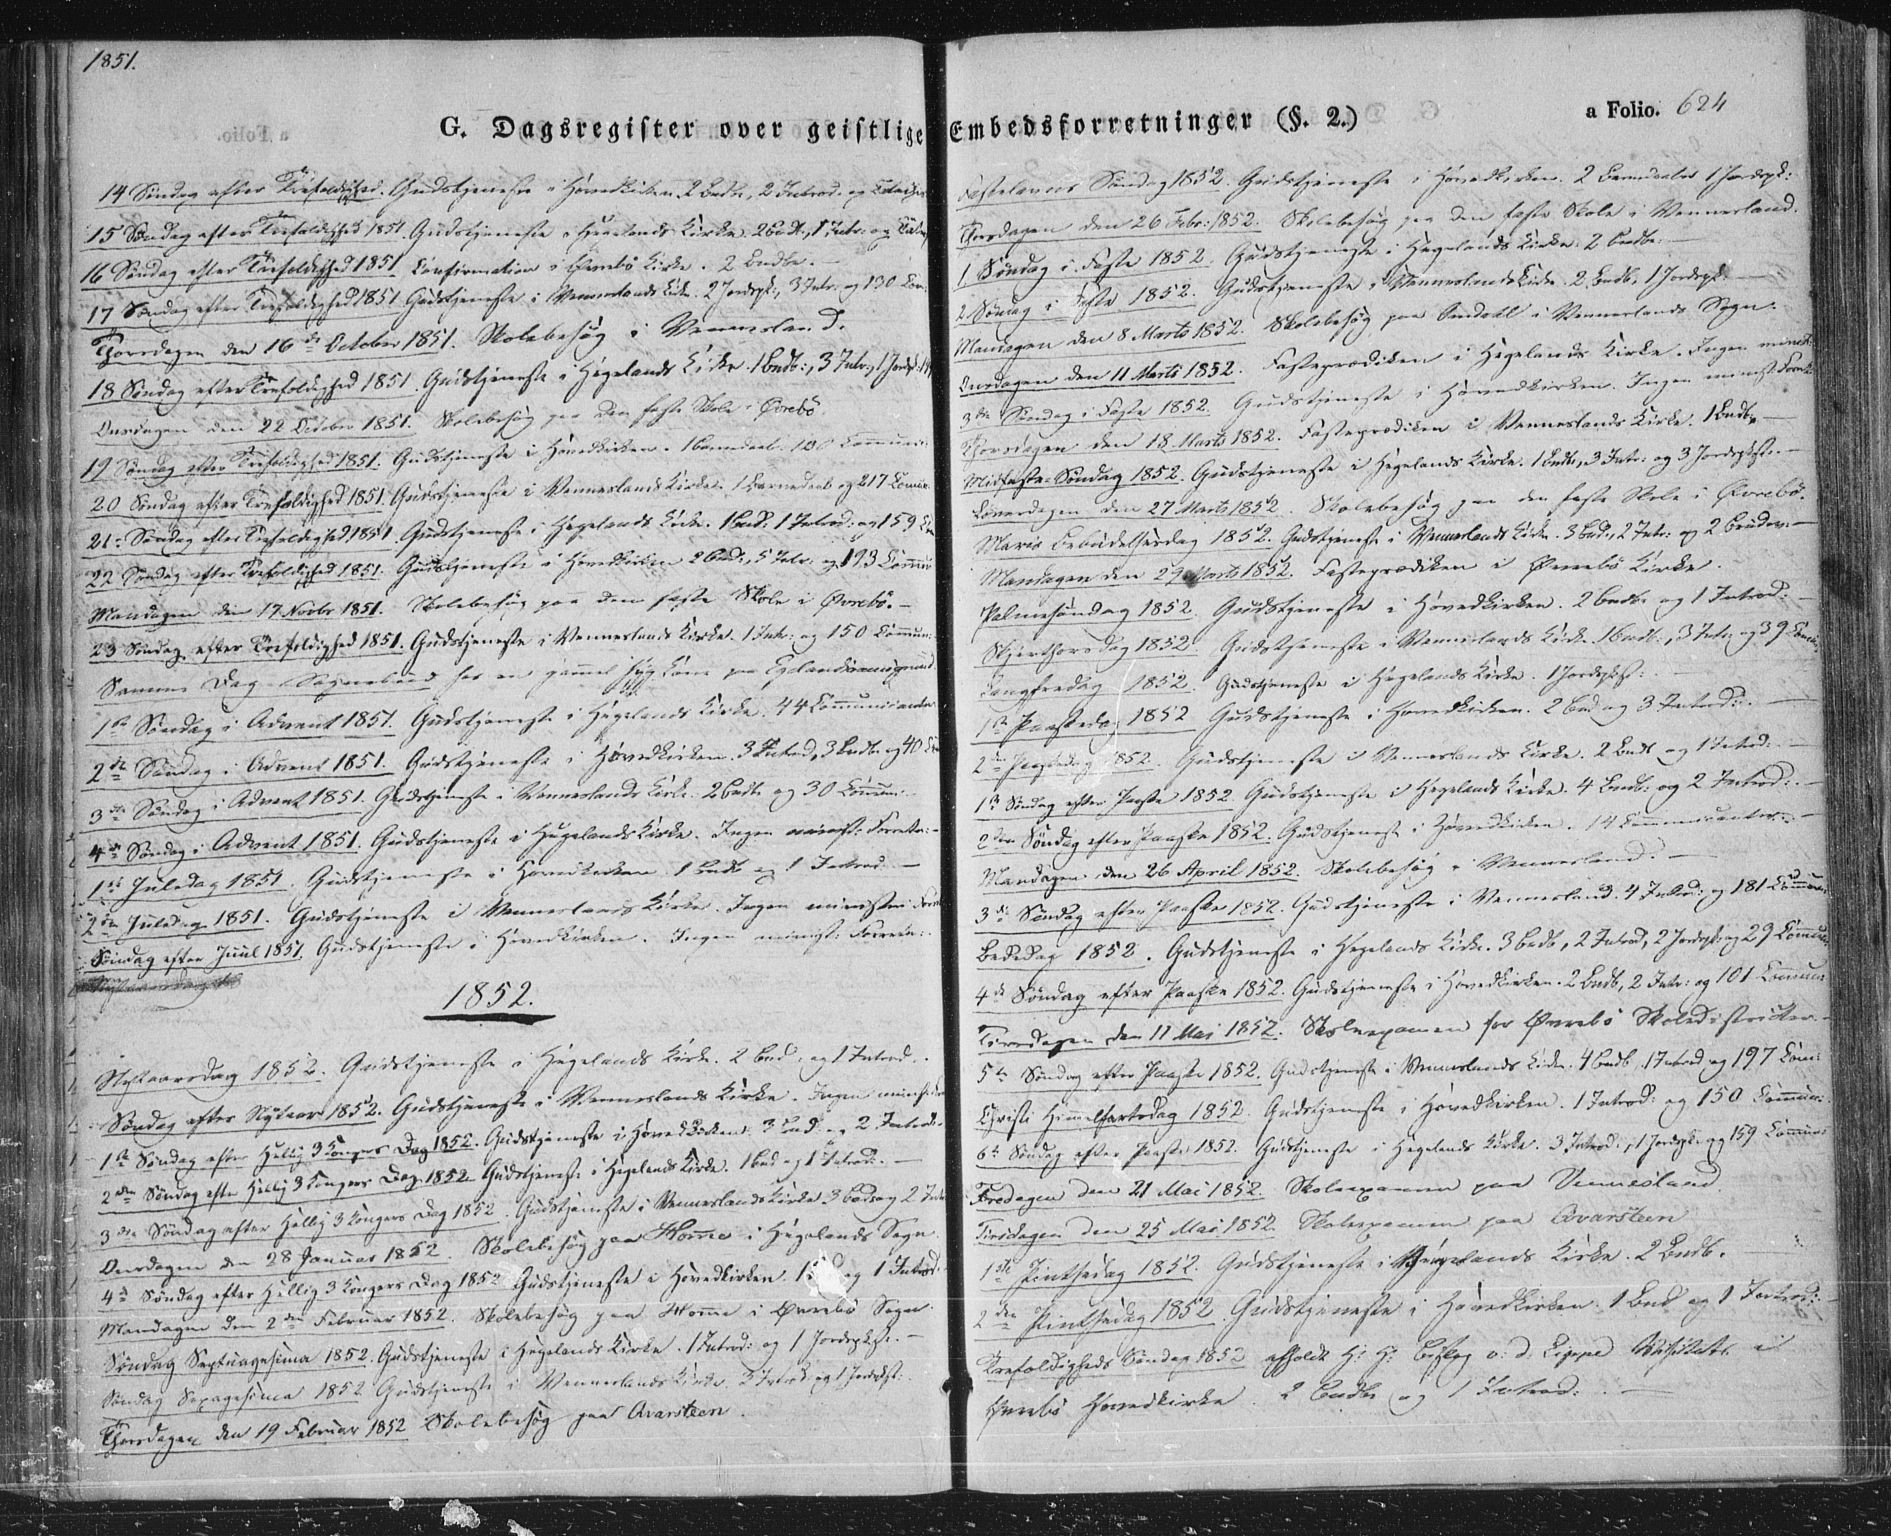 1851.
G. Dagsregister over geistlige Embedsforretninger (§. 2.)
a Folio. 624
14 Søndag efter Trefoldighed. Gudstjeneste i Hovedkirken. 2 Barnd., 2 Introd. og
15 Søndag efter Trefoldighed 1851. Gudstjeneste i Hægelands Kirke. 2 Bd., 1 Intr. og
16 Søndag efter Trefoldighed 1851 Confirmation i Øvrebö Kirke. 2 Barndb. —
17 Søndag efter Trefoldighed 1851 Gudstjeneste i Vennerslands Kirke. 2 Jordspk., 3 Intr. og 130 Com:
Thorsdagen den 16de October 1851. Skolebesøg i Vennersland.
18 Søndag efter Trefoldighed 1851. Gudstjeneste i Hægelands Kirke. 1 Barndb:, 3 Intr., 1 Jordspk.
Onsdagen den 22 October 1851. Skolebesøg paa den faste Skole i Øvrebö.
19 Søndag efter Trefoldighed 1851. Gudstjeneste i Hovedkirken. 1 Barnedaab. 100 Communi:
20 Søndag efter Trefoldighed 1851. Gudstjeneste i Vennerslands Kirke. 1 Barnedaab og 217 Commun:
21: Søndag efter Trefoldighed 1851. Gudstjeneste i Hægelands Kirke. 1 Bd. 1 Introd: og 159
22 Søndag efter Trefoldighed 1851. Gudstjeneste i Hovedkirken 2 Bd:, 5 Intr. og 193 Commun
Mandagen den 17 Novbr 1851. Skolebesøg paa den faste Skole i Øvrebö. —
23 Søndag efter Trefoldighed 1851. Gudstjeneste i Vennerslands Kirke. 1 Intr: og 150 Commun:
Samme Dag Sognebud hos en gammel syg Kone paa
1ste Søndag i Advent 1851. Gudstjeneste i Hægelands Kirke. 44 Communicanter
2den Søndag i Advent 1851. Gudstjeneste i Hovedkirken. 3 Introd., 3 Barndb. og 40
3die Søndag i Advent 1851. Gudstjeneste i Vennerslands Kirke. 2 Barndb. og 30 Commun:
4de Søndag i Advent 1851. Gudstjeneste i Hægelands Kirke. Ingen minist: Forretn: —
1ste Juledag 1851. Gudstjeneste i Hovedkirken. 1 Barndb og 1 Introd. —
2den Juledag 1851. Gudstjeneste i Vennerslands Kirke. Ingen ministr:
Søndag efter Juul 1851. Gudstjeneste i Hovedkirken. Ingen minist: Forretn:.
1852.
Nytaarsdag 1852. Gudstjeneste i Hægelands Kirke. 2 Bd. og 1 Introd.
Søndag efter Nytaar 1852. Gudstjeneste i Vennerslands Kirke. Ingen
1ste Søndag efter Hellig 3 Kongers Dag 1852. Gudstjeneste i Hovedkirken. 3 Bd. og 2 Introd.
2den Søndag efter Hellig 3 Kongers Dag 1852. Gudstjeneste i Hægelands Kirke. 1 Bd og 1 Introd:. —
3die Søndag efter Hellig 3 Kongers Dag 1852. Gudstjeneste i Vennerslands Kirke 3 Bd og 2
Onsdagen den 28 Januar 1852. Skolebesøg paa Homme i Hægelands Sogn.
4de Søndag efter Hellig 3 Kongers Dag 1852 Gudstjeneste i Hovedkirken. og 1 Introd.
Mandagen den 2den Februar 1852. Skolebesøg paa Homme i Øvrebö Sogn.
Søndag Septuagesima 1852. Gudstjeneste i Hægelands Kirke. 1 Introd: og 1 Jordspkst. —
Søndag Sexagesima 1852 Gudstjeneste i Vennerslands Kirke. 3 Introd og 1 Jordspkst:.
Thorsdagen den 19 Februar 1852 Skolebesøg paa Avarsteen.
Fastelavns Søndag 1852. Gudstjeneste i Hovedkirken. 2 Barnedaab 1 Jordspk:
Thorsdagen den 26 Febr: 1852. Skolebesøg paa den faste Skole i Vennersland.
1 Søndag i Faste 1852. Gudstjeneste i Hægelands Kirke. 2 Barndb. —
2 Søndag i Faste 1852. Gudstjeneste i Vennerslands Kirke. 2 Barndb., 1 Jordspk. —
Mandagen den 8 Marts 1852. Skolebesøg paa i Vennerslands Sogn.
Onsdagen den 11 Marts 1852. Fasteprædiken i Hægelands Kirke. Ingen minist:
3die Søndag i Faste 1852. Gudstjeneste i Hovedkirken. Ingen minst: Forretn.
Thorsdagen den 18 Marts 1852. Fasteprædiken i Vennerslands Kirke. 1 Barndb. —
Midfaste-Søndag 1852. Gudstjeneste i Hægelands Kirke. 1 Barndb., 3 Intr: og 3 Jordspkst. —
Løverdagen den 27 Marts 1852. Skolebesøg paa den faste Skole i Øvrebö.
Mariæ Bebudelsesdag 1852. Gudstjeneste i Vennerslands Kirke. 3 Bd., 2 Intr: og 2 —
Mandagen den 29 Marts 1852. Fasteprædiken i Øvrebö Kirke.
Palmesøndag 1852. Gudstjeneste i Hovedkirken. 2 Barndb. og 1 Introd: —
Skjærthorsdag 1852. Gudstjeneste i Vennerslands Kirke. 1 Barndb., 3 Intr. og 39 Comm:
Langfredag 1852. Gudstjeneste i Hægelands Kirke. 1 Jordspkst: —
1ste Paaskedag 1852 Gudstjeneste i Hovedkirken. 2 Bd og 3 Introd:. —
2den Paaskedag 1852. Gudstjeneste i Vennerslands Kirke. 2 Barndb og 1 Introd: —
1ste Søndag efter Paaske 1852. Gudstjeneste i Hægelands Kirke. 4 Barndb: og 2 Introd:. —
2den Søndag efter Paaske 1852. Gudstjeneste i Hovedkirken. 14 Communicanter. —
Mandagen den 26 April 1852. Skolebesøg i Vennersland. —
3die Søndag efter Paaske 1852. Gudstjeneste i Vennersland. 4 Introd: og 181 Commun:
Bededag 1852. Gudstjeneste i Hægelands Kirke. 3 Barndb, 2 Introd, 2 Jordspk: og 29 Commun
4de Søndag efter Paaske 1852. Gudstjeneste i Hovedkirken. 2 Barndb, 2 Intr: og 101 Commun
Tirsdagen den 11 Mai 1852. Skoleexamen for Øvrebö Skoledistricter. —
5te Søndag efter Paaske 1852. Gudstjeneste i Vennerslands Kirke. 4 Barndb. 1 Introd og 197 Com:
Christi Himmelfartsdag 1852. Gudstjeneste i Hovedkirken. 1 Introd: og 150 Commun:
6te Søndag efter Paaske 1852. Gudstjeneste i Hægelands Kirke. 3 Introd:, 1 Jordspk: og 159 Commun:
Fredagen den 21 Mai 1852. Skoleexamen paa Vennesland.
Tirsdagen den 25 Mai 1852. Skoleexamen paa Avarsteen
1ste Pintsedag 1852. Gudstjeneste i Hægelands Kirke. 2 Barndb.
2den Pintsedag 1852. Gudstjeneste i Hovedkirken. 1 Bd og 1 Introd: —
Trefoldigheds Søndag 1852 afholdt Hr: Biskop v. d. Lippe Visitats i
Øvrebö Hovedkirke. 2 Barndb. og 1 Introd: —